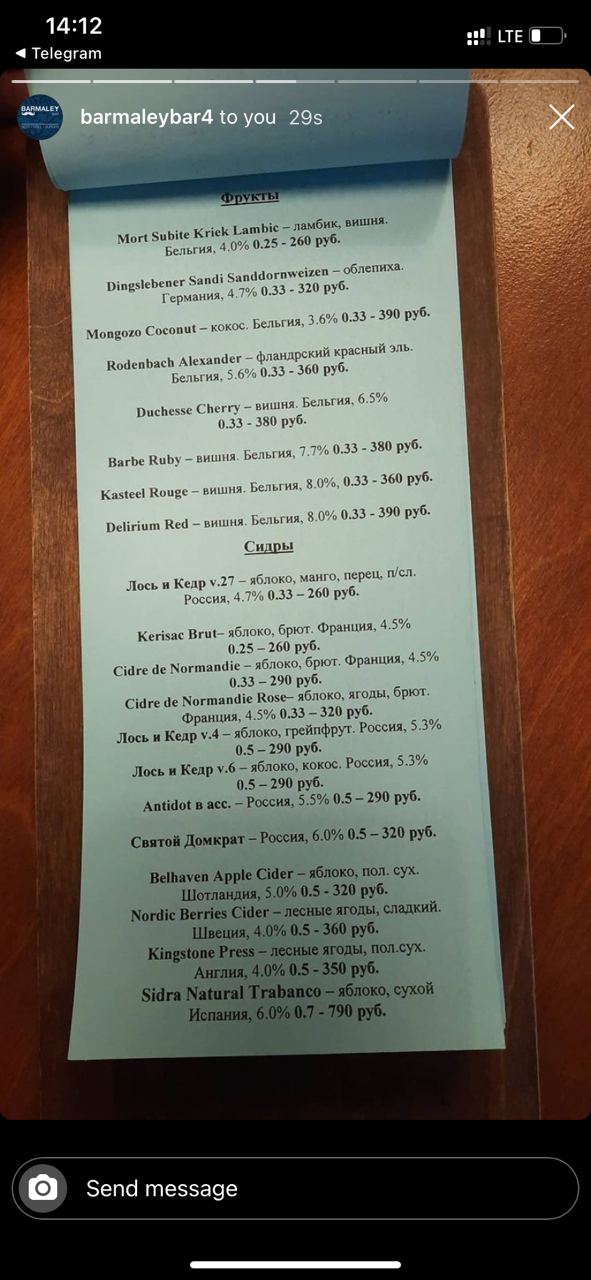 14:12
LTE
◀ Telegram
BARMALEY
barmaleybar4 to you 29s
Фрукты
Mort Subite Kriek Lambic – ламбик, вишня.
Бельгия, 4.0% 0.25 - 260 руб.
Dingslebener Sandi Sanddornweizen – облепиха.
Германия, 4.7% 0.33 - 320 руб.
Mongozo Coconut – кокос. Бельгия, 3.6% 0.33 - 390 руб.
Rodenbach Alexander – фландрский красный эль.
Бельгия, 5.6% 0.33 - 360 руб.
Duchesse Cherry – вишня. Бельгия, 6.5%
0.33 - 380 руб.
Barbe Ruby – вишня. Бельгия, 7.7% 0.33 - 380 руб.
Kasteel Rouge – вишня. Бельгия, 8.0%, 0.33 - 360 руб.
Delirium Red – вишня. Бельгия, 8.0% 0.33 - 390 руб.
Сидры
Лось и Кедр v.27 – яблоко, манго, перец, п/сл.
Россия, 4.7% 0.33 – 260 руб.
Kerisac Brut– яблоко, брют. Франция, 4.5%
0.25 – 260 руб.
Cidre de Normandie – яблоко, брют. Франция, 4.5%
0.33 – 290 руб.
Cidre de Normandie Rose– яблоко, ягоды, брют.
Франция, 4.5% 0.33 – 320 руб.
Лось и Кедр v.4 – яблоко, грейпфрут. Россия, 5.3%
0.5 – 290 руб.
Лось и Кедр v.6 – яблоко, кокос. Россия, 5.3%
0.5 – 290 руб.
Antidot в асс. – Россия, 5.5% 0.5 – 290 руб.
Святой Домкрат – Россия, 6.0% 0.5 – 320 руб.
Belhaven Apple Cider – яблоко, пол. сух.
Шотландия, 5.0% 0.5 - 320 руб.
Nordic Berries Cider – лесные ягоды, сладкий.
Швеция, 4.0% 0.5 - 360 руб.
Kingstone Press – лесные ягоды, пол.сух.
Англия, 4.0% 0.5 - 350 руб.
Sidra Natural Trabanco – яблоко, сухой
Испания, 6.0% 0.7 - 790 руб.
Send message